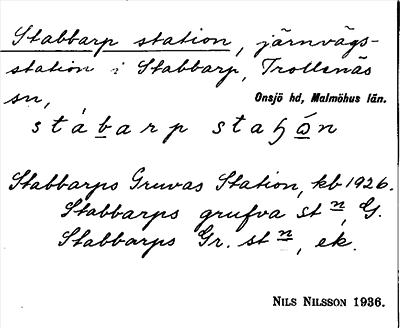 Stabbarp station, järnvägs-
station i Stabbarp, Trollenäs
sn, Onsjö hd, Malmöhus län.
stábarp staꜧón
Stabbarps Gruvas Station, kb 1926.
Stabbarps grufva stn, G.
Stabbarps Gr. stn, ek.
NILS NILSSON 1936.